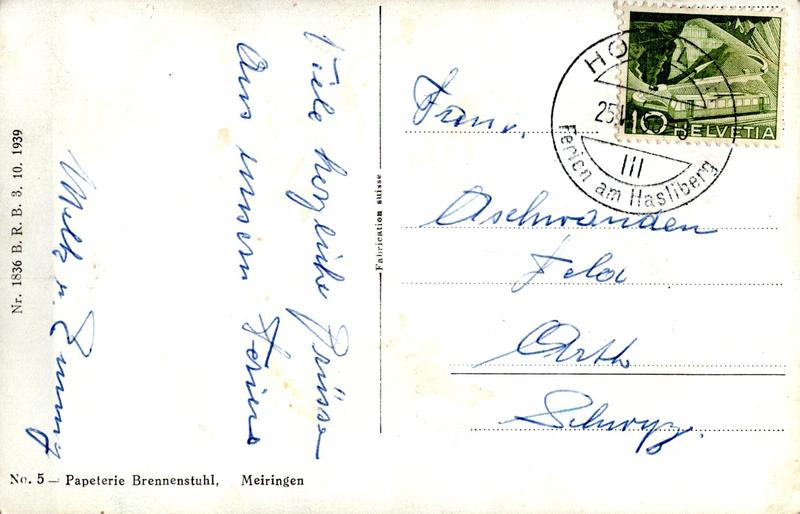 Viele herzliche Grüsse
Aus unsern Ferien
Emmy
Fam.
Aschwanden
Feld
Arth
Schwyz.
Fabrication suisse
Nr. 1836 B. R. B. 3. 10. 1939
No. 5 — Papeterie Brennenstuhl, Meiringen
25.
III
Ferien am Hasliberg
10
HELVETIA